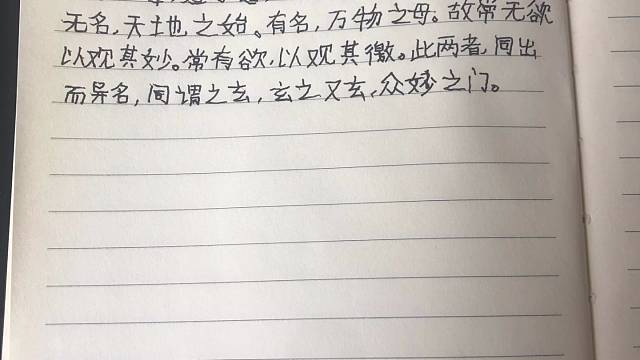 无名,天地之始。有名,万物之母。故常无欲
以观其妙。常有欲,以观其徼。此两者,同出
而异名,同谓之玄,玄之又玄,众妙之门。